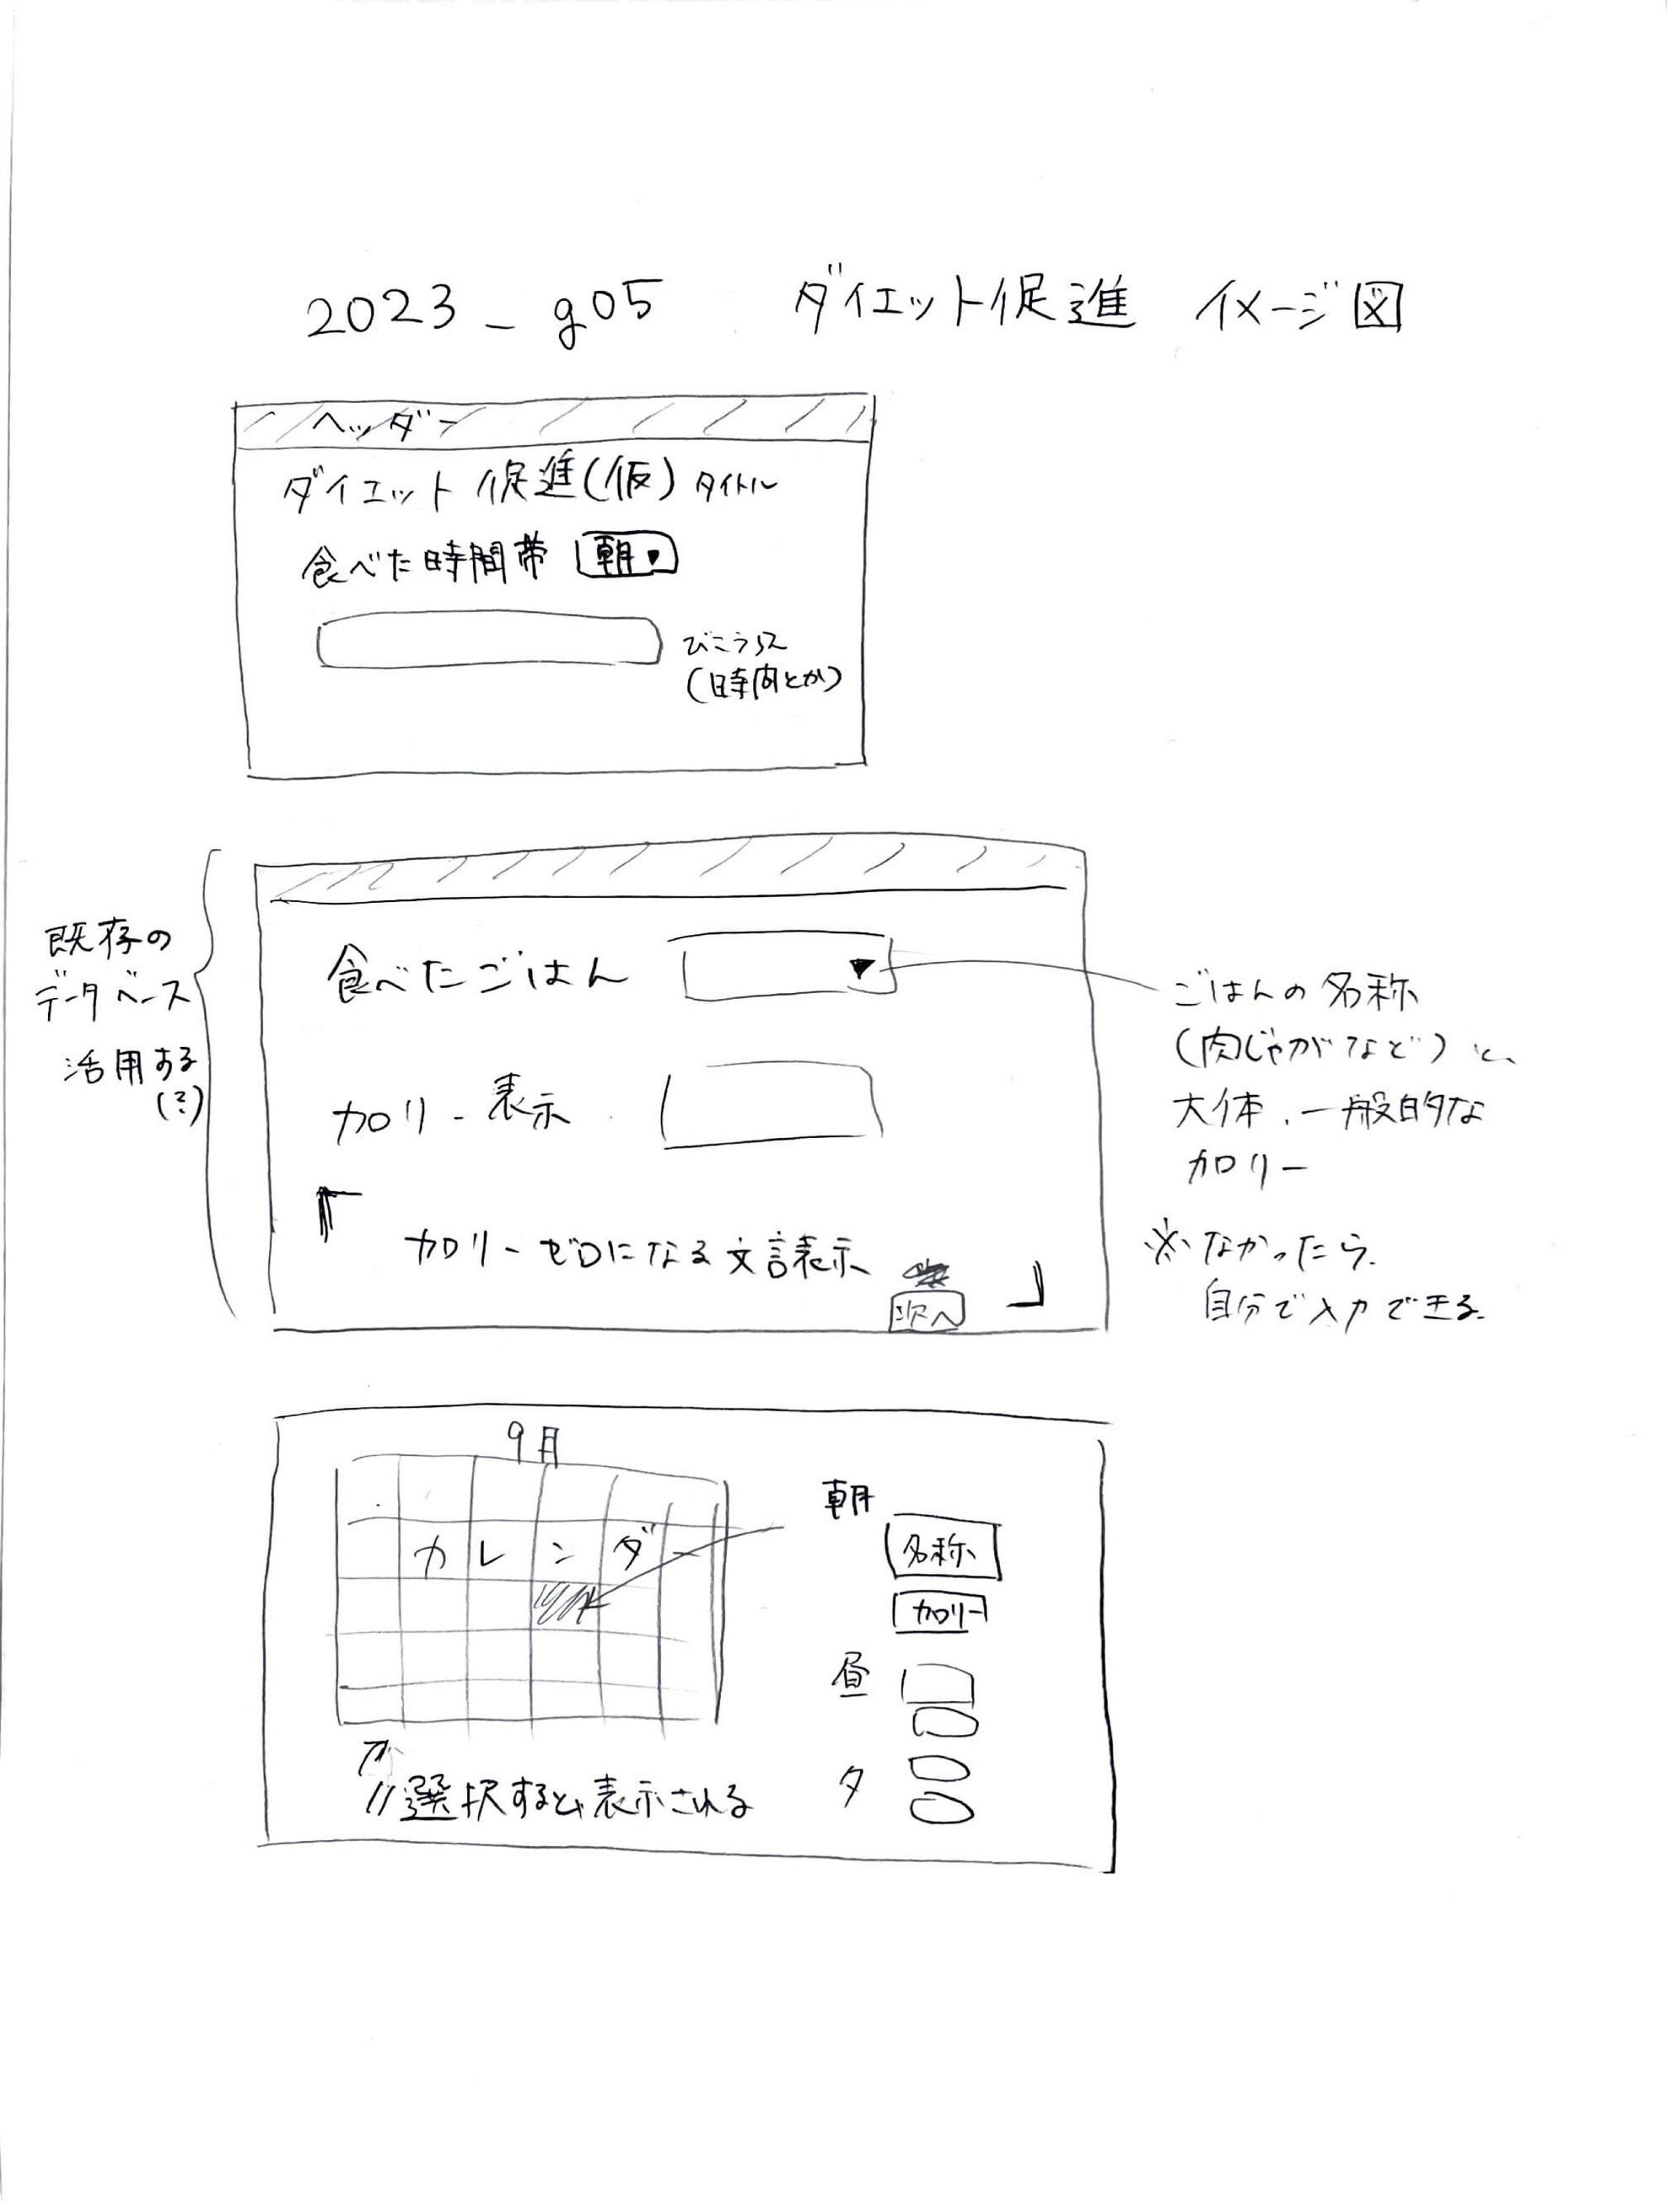 2023_g05 ダイエット促進 イメージ図
ヘッダー
ダイエット促進(仮) タイトル
食べた時間帯 朝▼
びこうらん
(時間とか)
既存の
データベース
活用する
(?)
食べたごはん ▼
カロリー表示
「カロリーゼロになる文言表示」
次へ
ごはんの名称
(肉じゃがなど)と、
大体、一般的な
カロリー
※なかったら、
自分で入力できる。
9月
カレンダー
選択すると表示される
朝
名称
カロリー
昼
夕